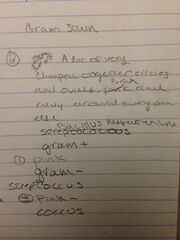 Gram Stain
② A lot of very
clumped together circles
Pink
and ovals, pink and
every around everyone
else
Bacillus
streptococcus
gram +
① pink
gram -
streptoccus
② Pink -
coccus